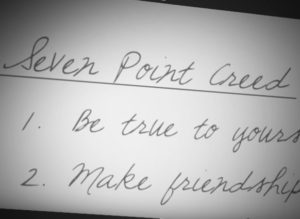 Seven Point Creed
1. Be true to yours
2. Make friendship